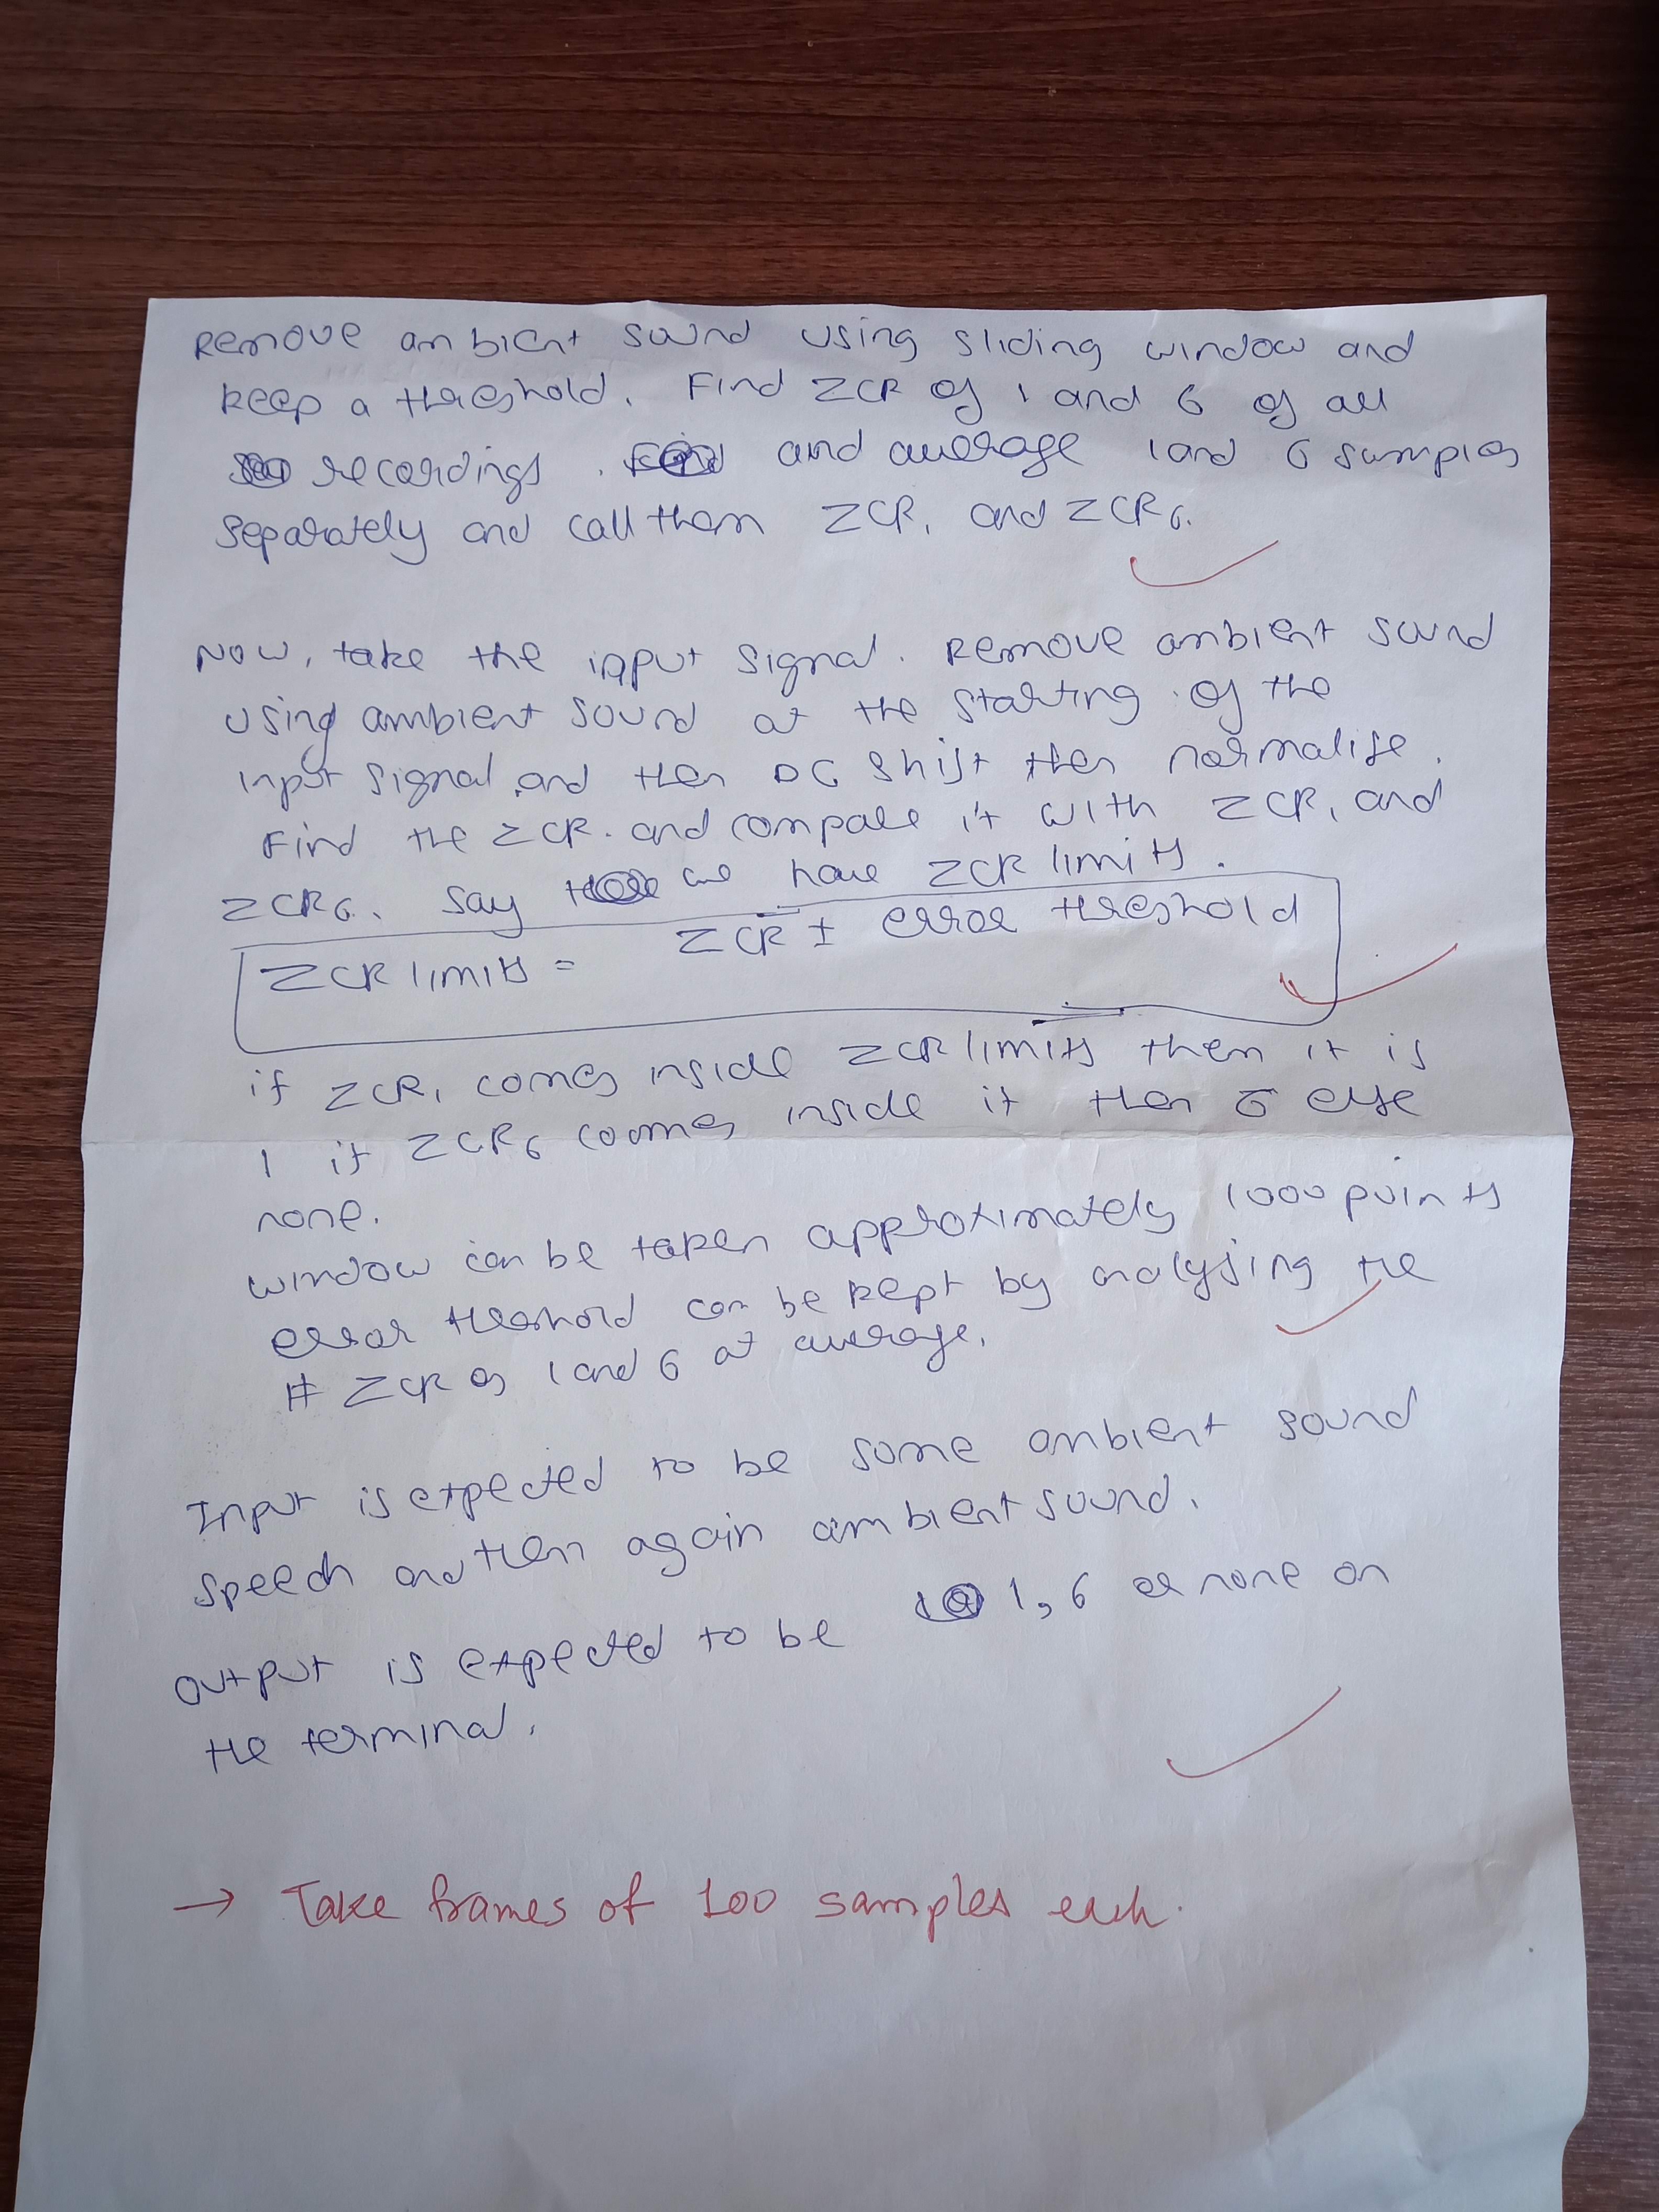 Remove ambient sound using sliding window and
keep a threshold. Find ZCR of 1 and 6 of all
recordings. and average 1 and 6 samples
separately and call them ZCR₁ and ZCR₆.
Now, take the input signal. Remove ambient sound
using ambient sound at the starting of the
input signal and then DC shift then normalise.
Find the ZCR. and compare it with ZCR₁ and
ZCR₆. Say we have ZCR limits.
ZCR limits = ZCR ± error threshold
if ZCR₁ comes inside ZCR limits then it is
1 if ZCR₆ comes inside it then 6 else
none.
window can be taken approximately 1000 points
error threshold can be kept by analysing the
ZCR of 1 and 6 at average.
Input is expected to be some ambient sound
speech and then again ambient sound.
Output is expected to be 1, 6 or none on
the terminal.
→ Take frames of 100 samples each.